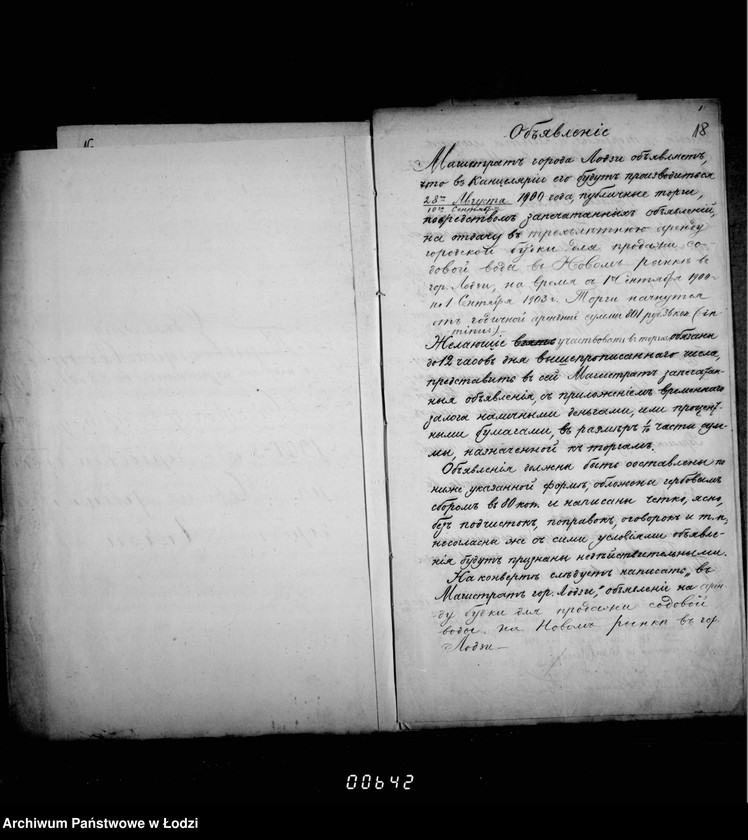 18
Объявленіе
Магистратъ города Лодзи объявляетъ,
что въ Канцеляріи его будутъ производиться
28го Августа 1900 года, публичные торги,
10го Сентября
посредствомъ запечатанныхъ объявленій,
на отдачу въ трехлѣтнюю аренду
городской будки для продажи со-
довой воды въ Новомъ рынкѣ въ
гор. Лодзи, на время съ 1го Сентября 1900 г.
по 1 Сентября 1903 г. Торги начнутся
отъ годичной арендной суммы 801 руб. (in
minus).
Желающіе участвовать въ торгахъ обязаны
до 12 часовъ дня вышепрописаннаго числа,
представить въ сей Магистратъ запечатан-
ныя объявленія, съ приложеніемъ временнаго
залога наличными деньгами, или процент-
ными бумагами, въ размѣрѣ 1/10 части сум-
мы, назначенной къ торгамъ.
Объявленія должны быть составлены по
ниже указанной формѣ, обложены гербовымъ
сборомъ въ 80 коп. и написаны четко, ясно,
безъ подчистокъ, поправокъ, оговорокъ и т. п.,
несогласны же съ сими условіями объявле-
нія будутъ признаны недѣйствительными.
На конвертѣ слѣдуетъ написать: „въ
Магистратъ гор. Лодзи," объявленій на арен-
ду будки для продажи содовой
воды на Новомъ рынкѣ въ гор.
Лодзи —
00642
Archiwum Państwowe w Łodzi